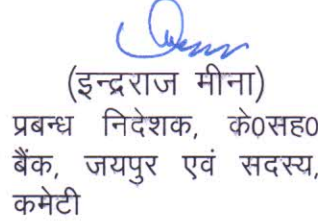 (इन्द्रराज मीना)
प्रबन्ध निदेशक, के0सह0
बैंक, जयपुर एवं सदस्य,
कमेटी